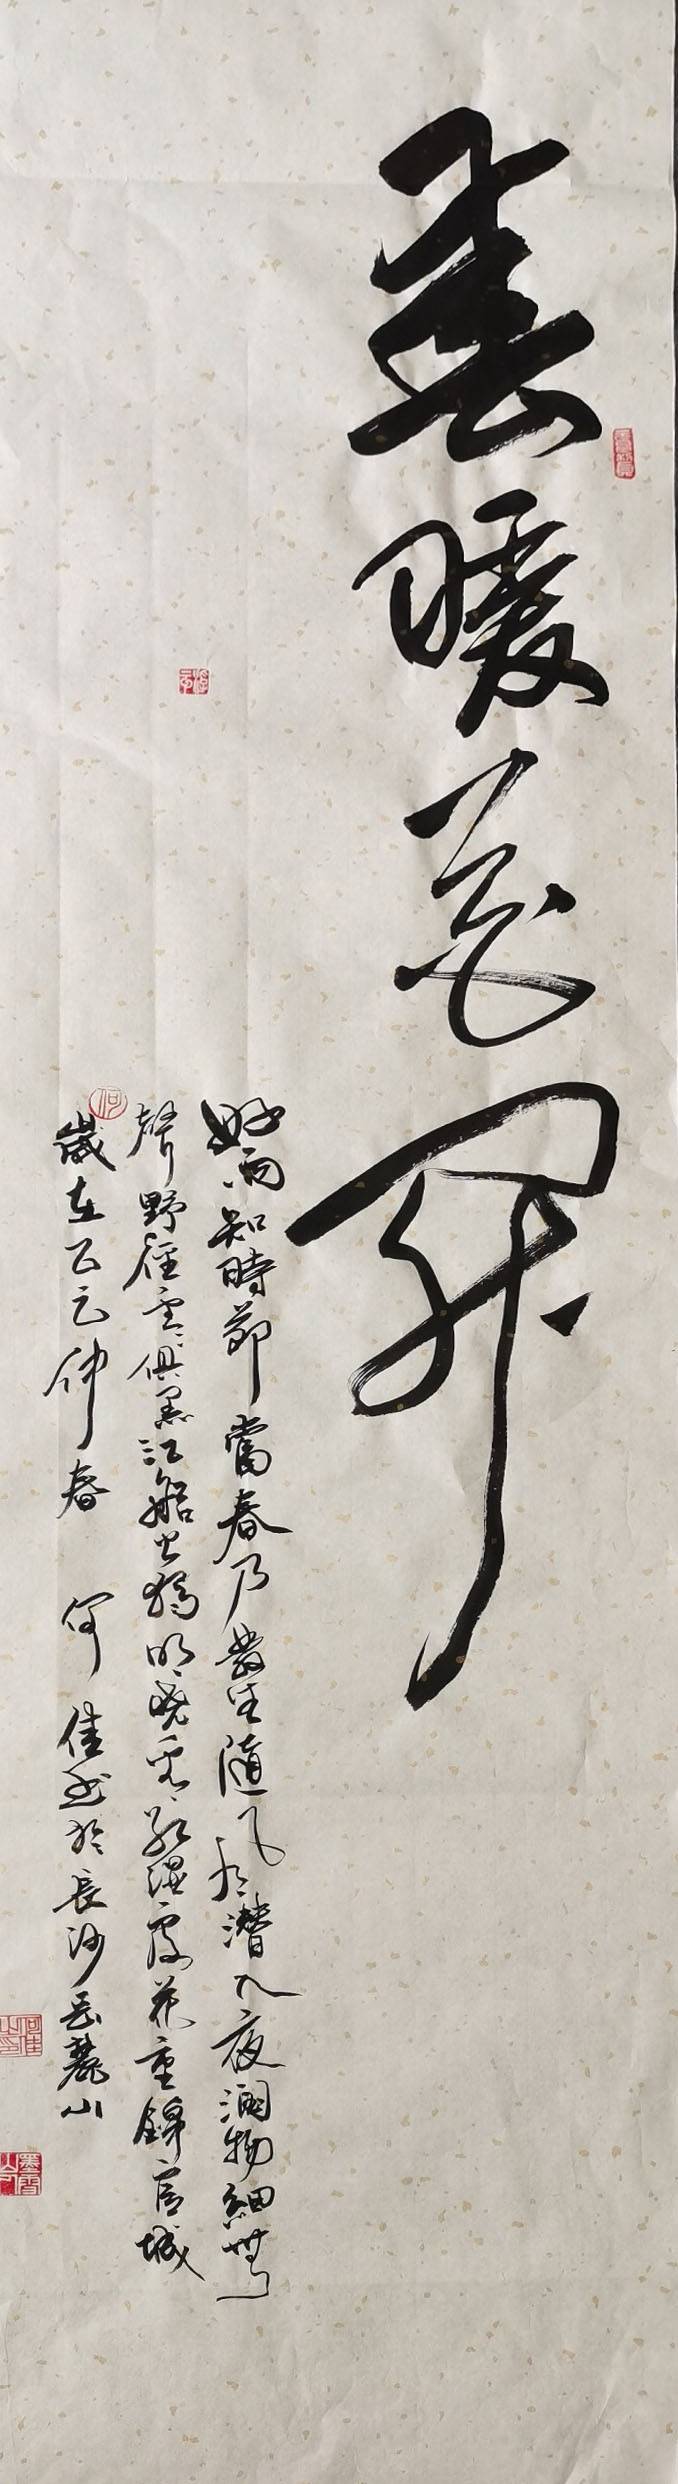 春暖花開
好雨知時節當春乃發生隨風潛入夜潤物細無
聲野徑雲俱黑江船火獨明曉看紅濕處花重錦官城
歲在乙巳仲春 何佳书於長沙岳麓山
何
何佳